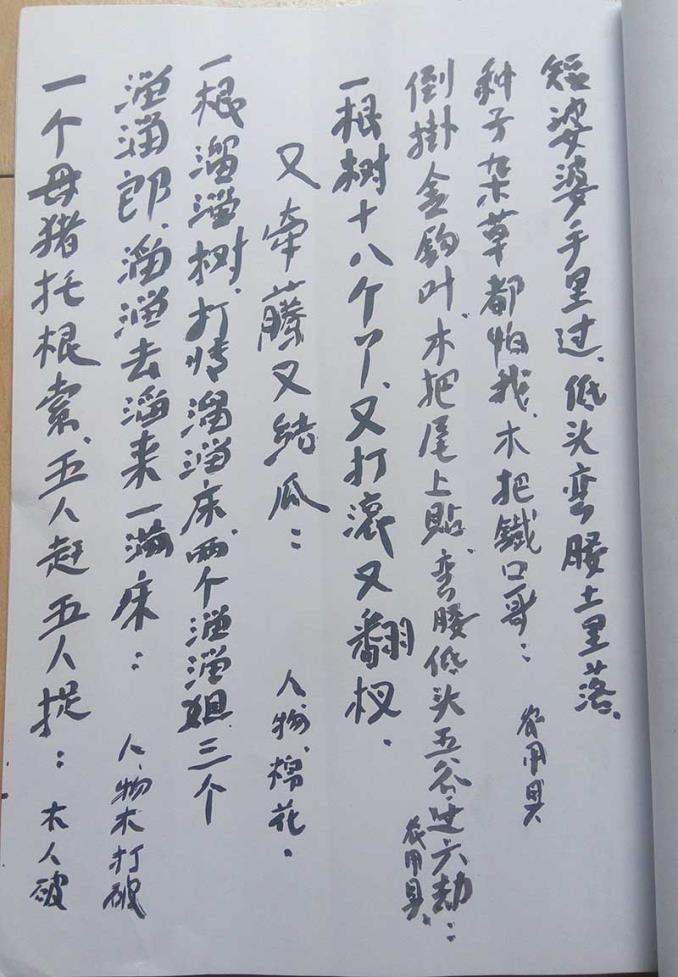 短婆婆手里过、低头弯腰土里落、
种子杂草都怕我、木把鐵口哥：农用具
倒掛金鈎叶、木把尾上貼、弯腰低头五谷过六劫：农用具、
一根树十八个丫、又打滚又翻杈、
又牵藤又結瓜：人物、棉花。
一根溜溜树、打情溜溜床、两个溜溜姐、三个
溜溜郎、溜溜去溜来一满床：人、物未打破
一个母猪托根索、五人赶五人捉：木人破